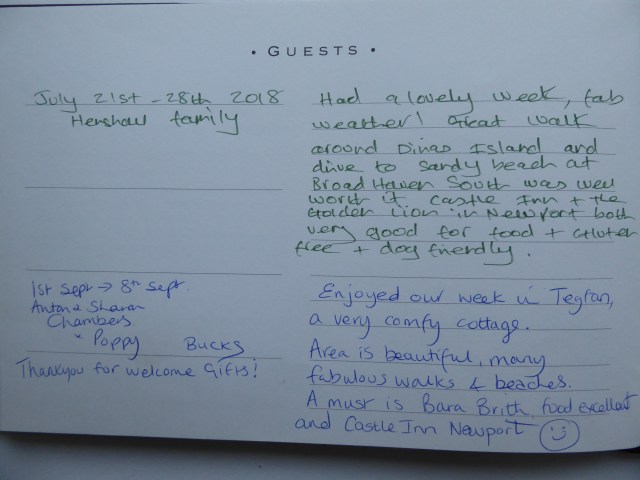 • GUESTS •
July 21st - 28th 2018
Henshaw family
Had a lovely week, fab
weather! Great walk
around Dinas Island and
drive to sandy beach at
Broad Haven South was well
worth it. Castle Inn + the
Golden Lion in Newport both
very good for food + Gluten
free + dog friendly.
1st Sept → 8th Sept.
Anton & Sharon
Chambers
x Poppy Bucks
Thankyou for welcome Gifts!
Enjoyed our week in Tegfan,
a very comfy cottage.
Area is beautiful, many
fabulous walks & beaches.
A must is Bara Brith, food excellent
and Castle Inn Newport ☺